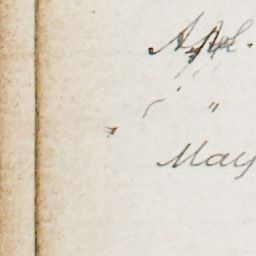 Apl.
"
May